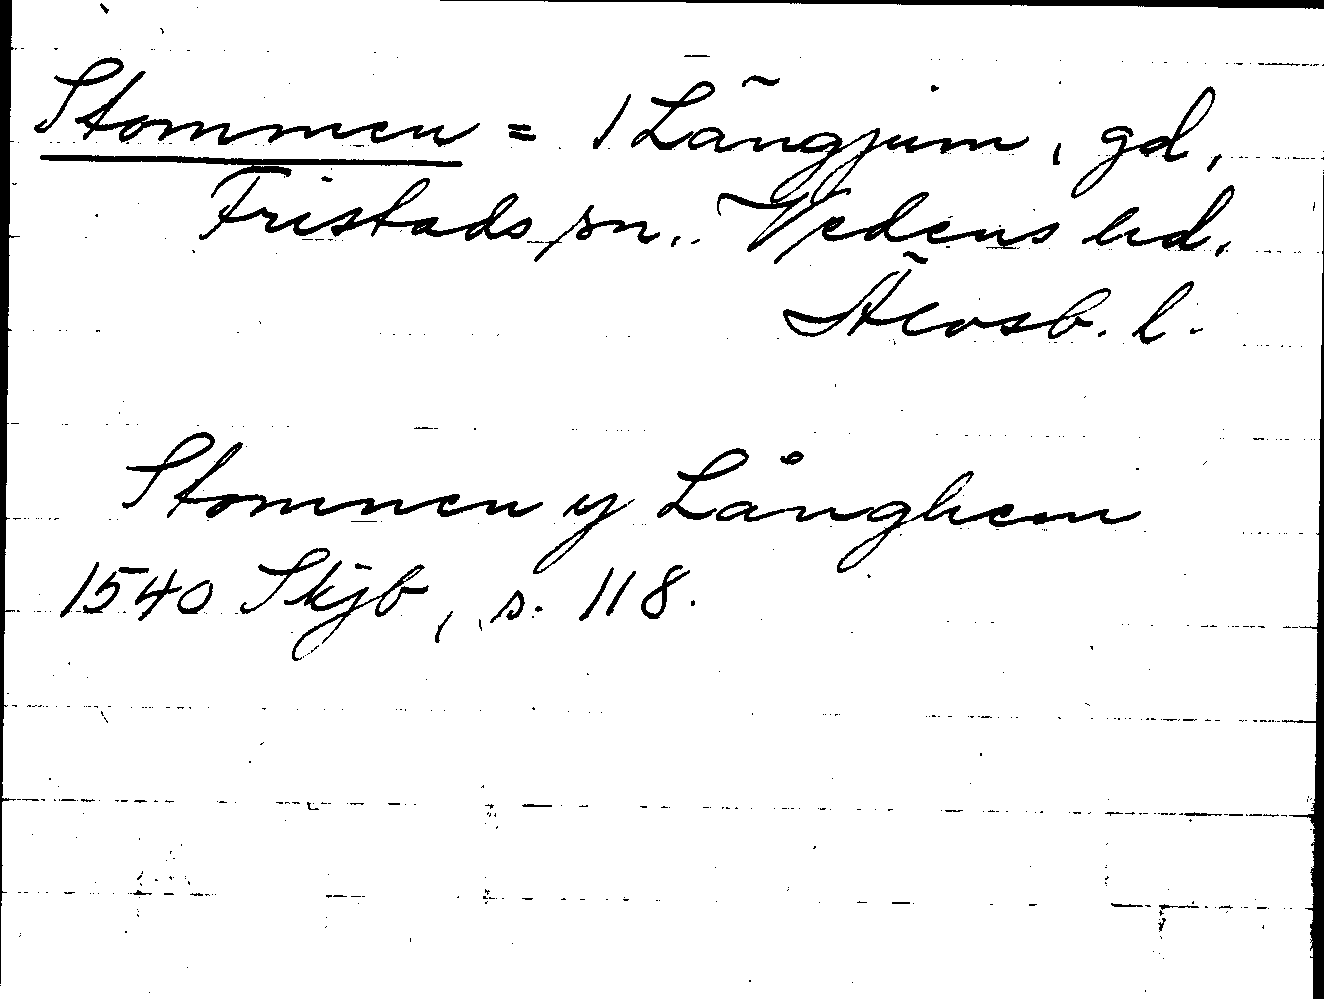 Stommen = 1 Längjum, gd,
Fristads sn, Vedens hd,
Älvsb. l.
Stomnen y Långhem
1540 Skjb, s. 118.